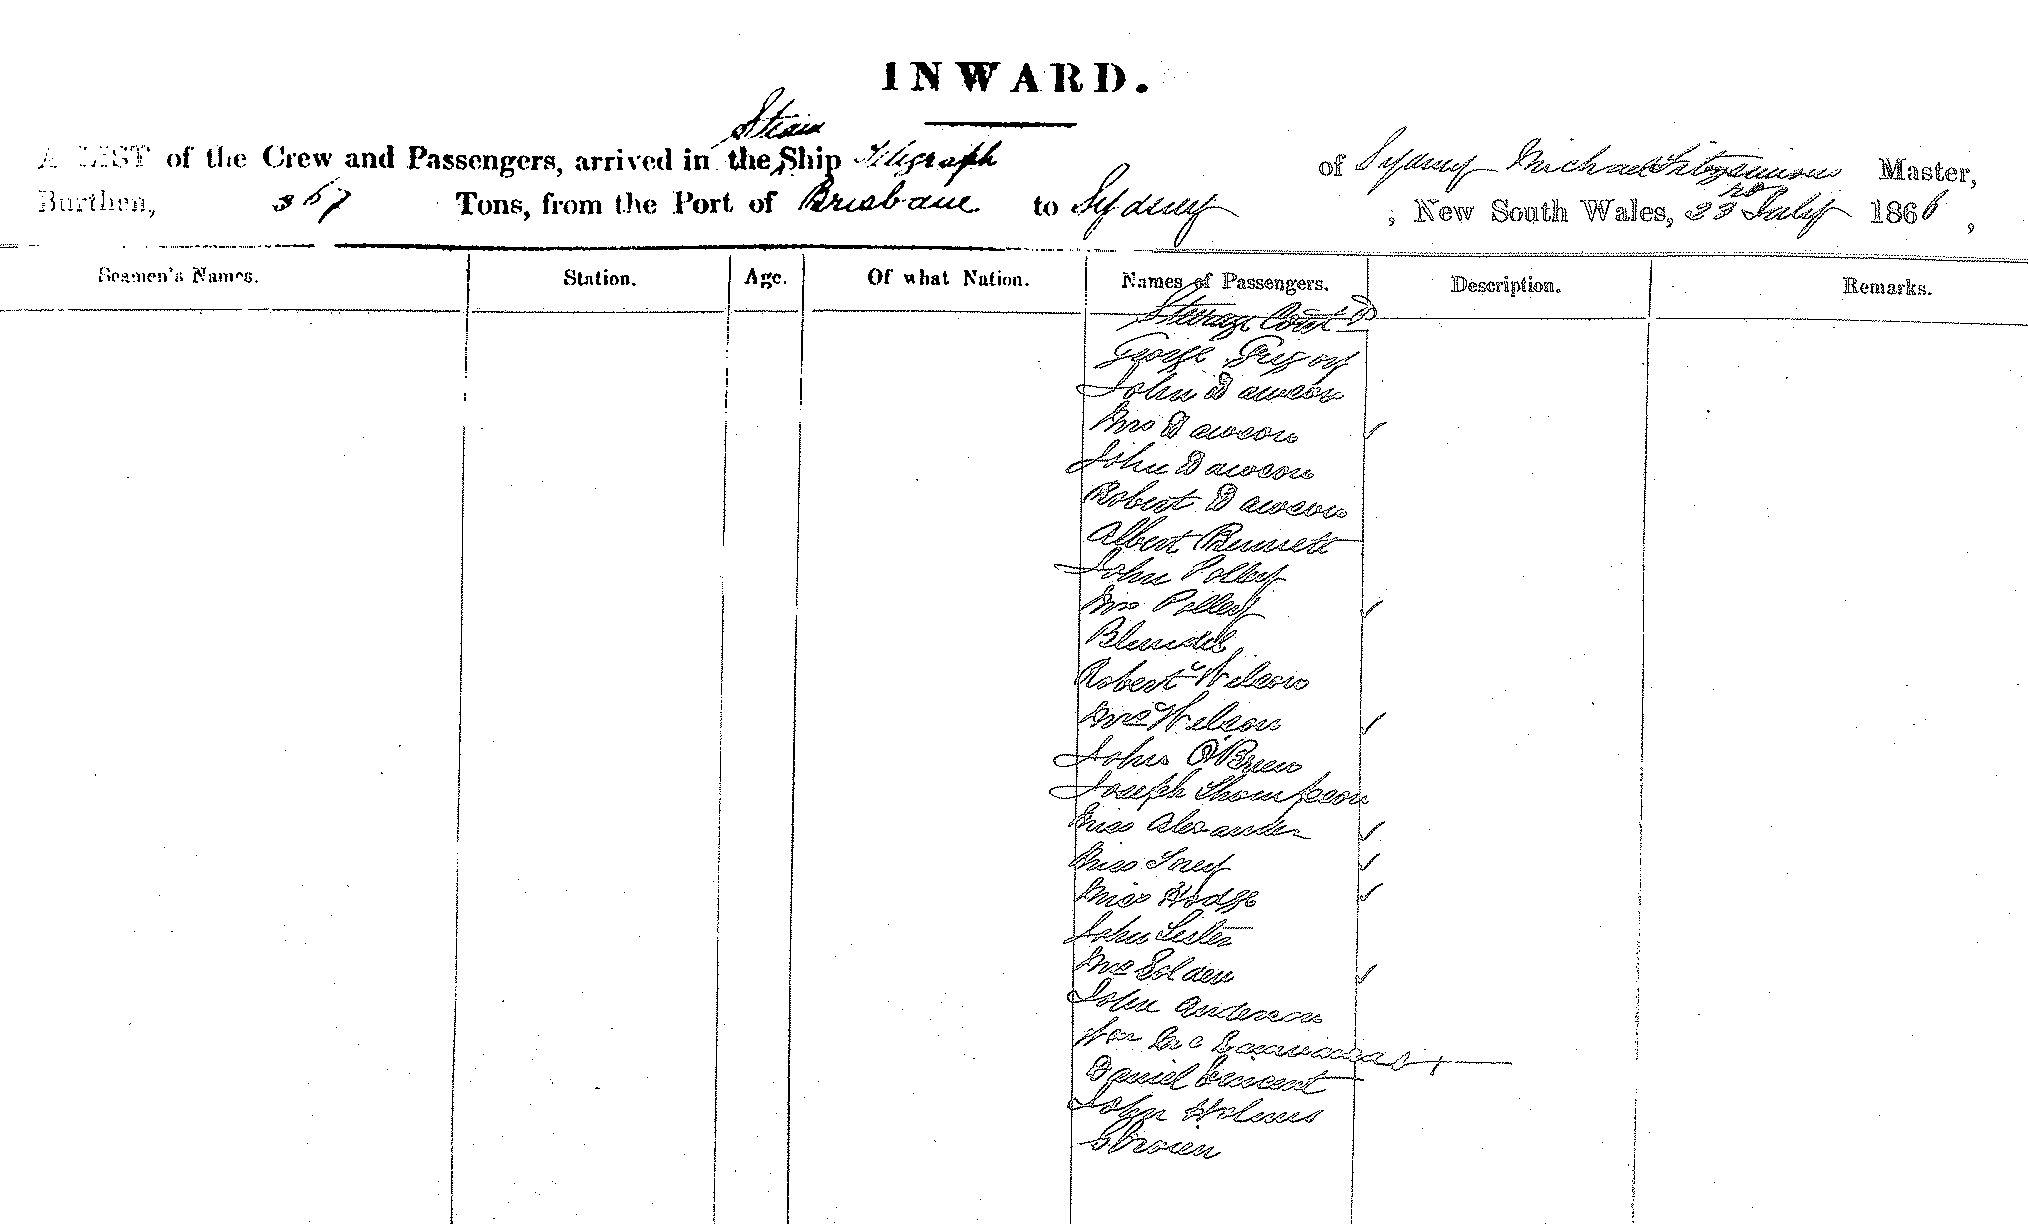 INWARD.
Steam
A LIST of the Crew and Passengers, arrived in the Ship Telegraph of Sydney Michael Fitzsimons Master,
Burthen, 367 Tons, from the Port of Brisbane to Sydney , New South Wales, 23rd July 1866,
Seamen's Names. Station. Age. Of what Nation. Names of Passengers. Description. Remarks.
Steerage Contd
George Gregory
John Dawson
Mrs Dawson
John Dawson
Robert Dawson
Albert Bennett
John Polley
Mrs Polley
Blundel
Robert Wilson
Mrs Wilson
John O'Brien
Joseph Thompson
Miss Alexander
Miss
Miss Hodge
John Lister
Mrs Golden
John Anderson
Wm Mc
Daniel Vincent
John Holmes